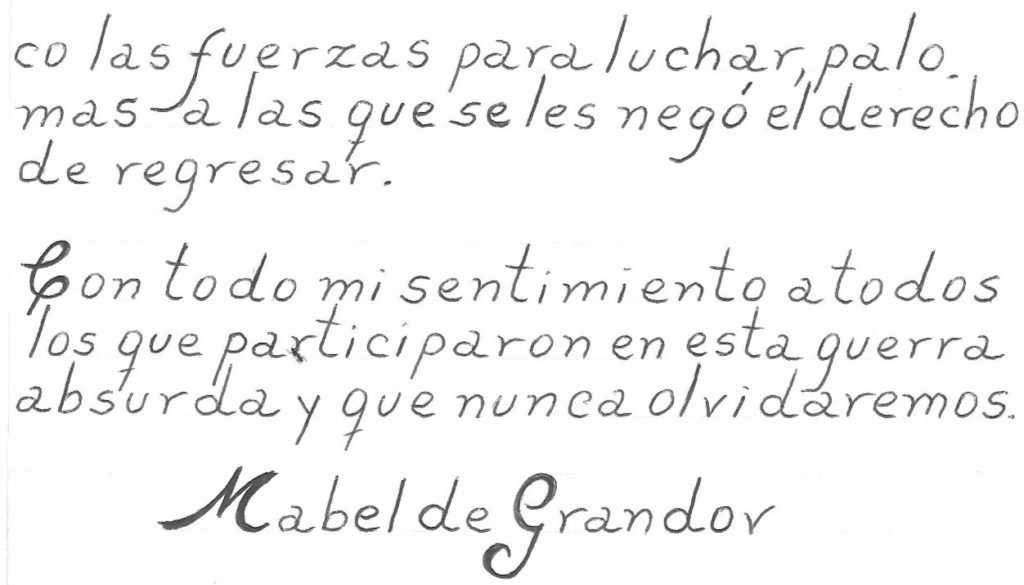 co las fuerzas para luchar, palo-
mas a las que se les negó el derecho
de regresar.
Con todo mi sentimiento a todos
los que participaron en esta guerra
absurda y que nunca olvidaremos.
Mabel de Grandov